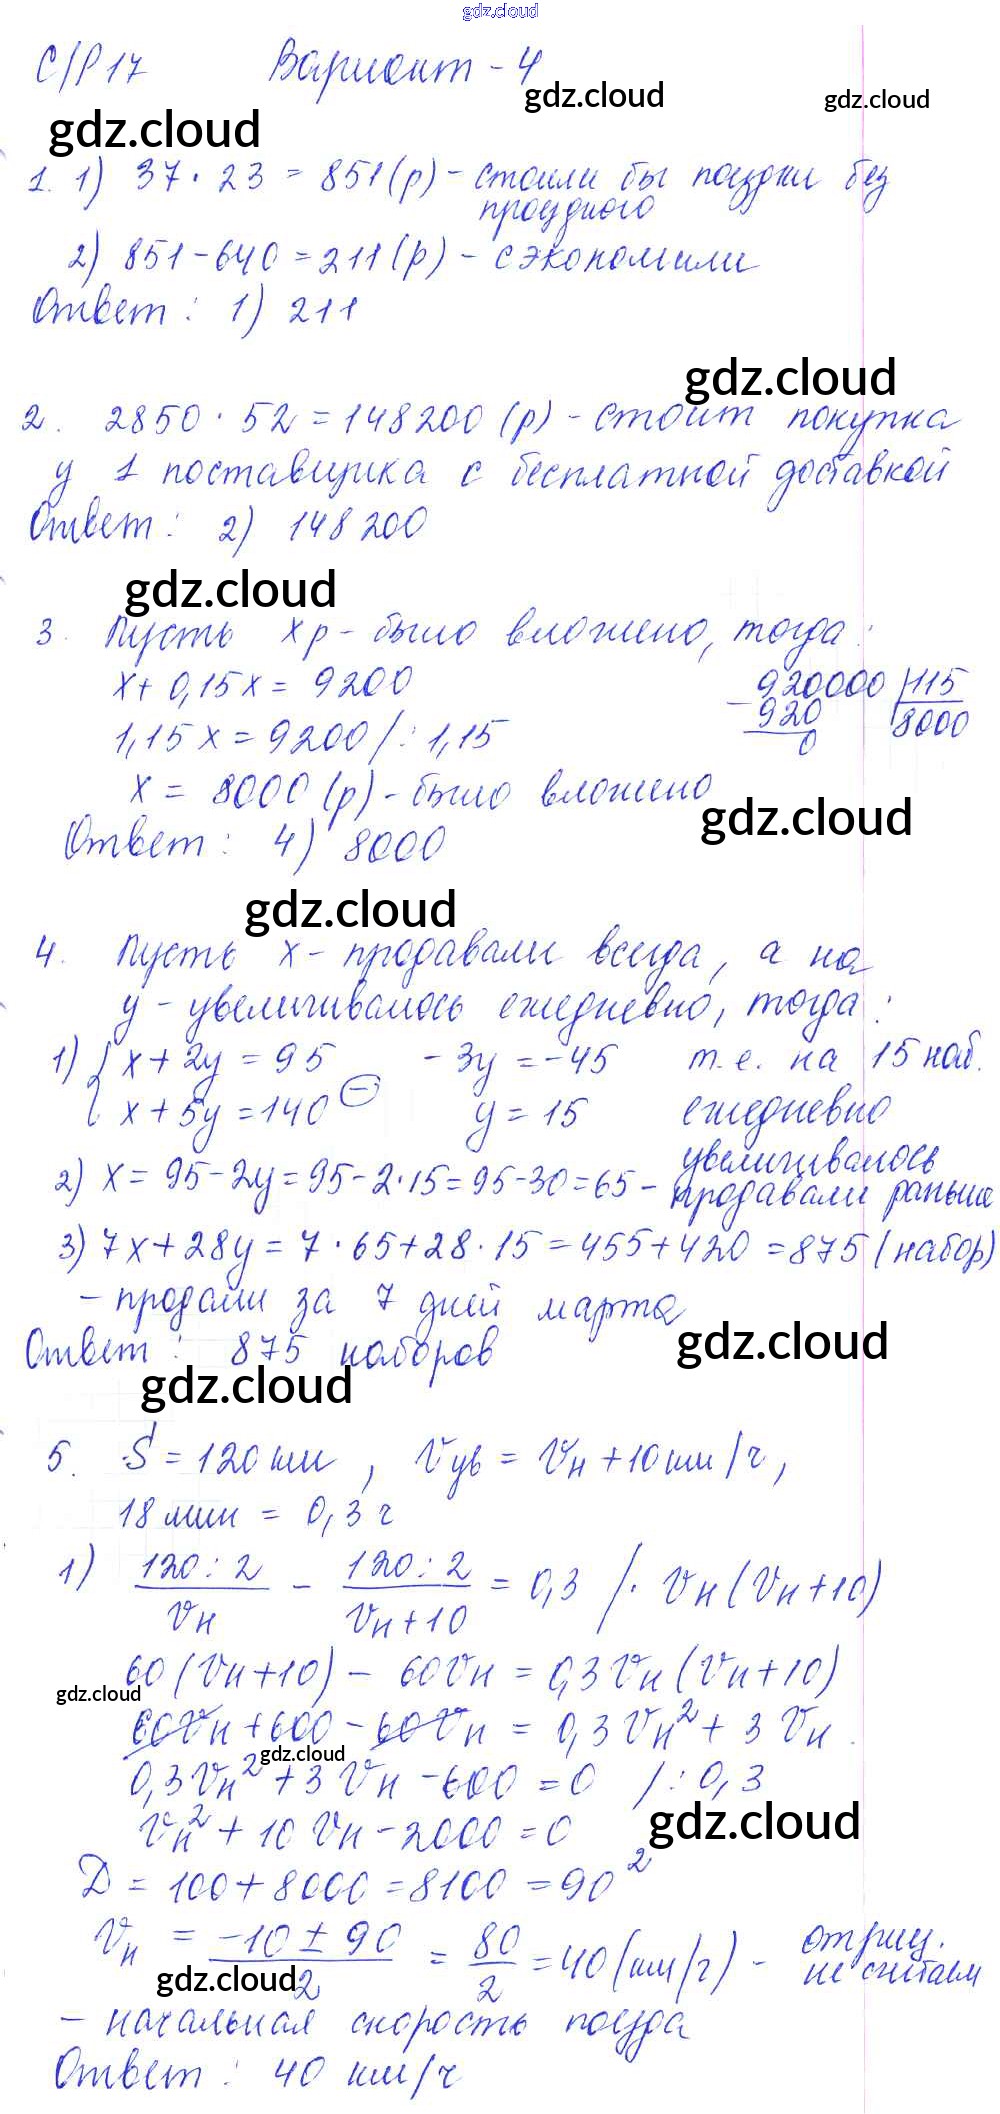 gdz.cloud
С/Р 17 Вариант - 4
gdz.cloud gdz.cloud
gdz.cloud
1. 1) 37 · 23 = 851 (р) - стоили бы поездки без
проездного
2) 851 - 640 = 211 (р) - сэкономили
Ответ: 1) 211
gdz.cloud
2. 2850 · 52 = 148200 (р) - стоит покупка
у 1 поставщика с бесплатной доставкой
Ответ: 2) 148200
gdz.cloud
3. Пусть x р - было вложено, тогда:
x + 0,15x = 9200
920000 | 115
- 920 8000
0
1,15x = 9200 / : 1,15
x = 8000 (р) - было вложено
gdz.cloud
Ответ: 4) 8000
gdz.cloud
4. Пусть x - продавали всегда, а на
y - увеличивалось ежедневно, тогда:
1) { x + 2y = 95 - 3y = -45 т.е. на 15 наб.
{ x + 5y = 140 (-) y = 15 ежедневно
увеличивалось
2) x = 95 - 2y = 95 - 2·15 = 95 - 30 = 65 - продавали раньше
3) 7x + 28y = 7 · 65 + 28 · 15 = 455 + 420 = 875 (набор)
- продали за 7 дней марта
gdz.cloud
Ответ: 875 наборов
gdz.cloud
5. S = 120 км, Vув = Vн + 10 км/ч,
18 мин = 0,3 ч
1) 120:2/Vн - 120:2/(Vн+10) = 0,3 / · Vн (Vн+10)
60 (Vн+10) - 60Vн = 0,3Vн (Vн+10)
gdz.cloud
60Vн + 600 - 60Vн = 0,3Vн² + 3Vн.
gdz.cloud
0,3Vн² + 3Vн - 600 = 0 / : 0,3
Vн² + 10Vн - 2000 = 0
gdz.cloud
Д = 100 + 8000 = 8100 = 90²
Vн = (-10 ± 90)/2 = 80/2 = 40 (км/ч) - отриц.
не считаем
gdz.cloud
- начальная скорость поезда
Ответ: 40 км/ч